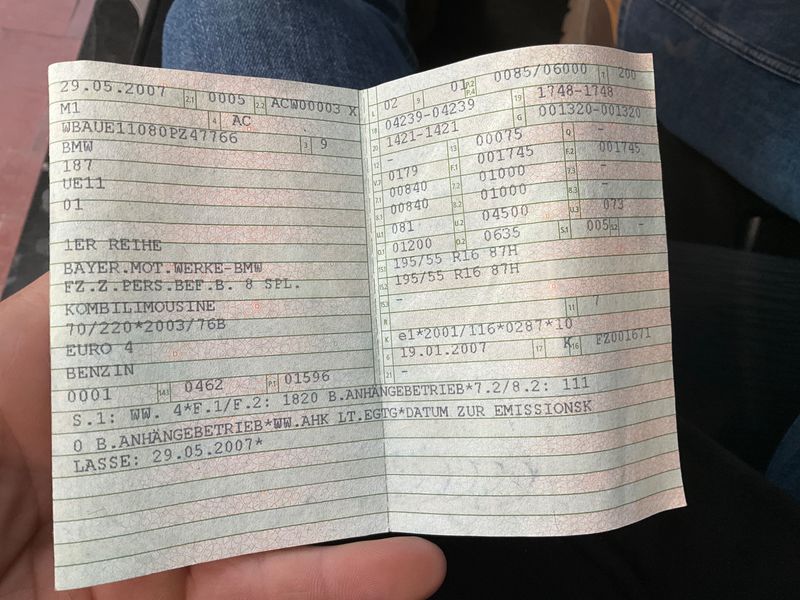 29.05.2007 2.1 0005 2.2 ACW00003 X
M1 4 AC
WBAUE11080PZ47766 3 9
BMW
187
UE11
01
1ER REIHE
BAYER.MOT.WERKE-BMW
FZ.Z.PERS.BEF.B. 8 SPL.
KOMBILIMOUSINE
70/220*2003/76B
EURO 4
BENZIN
0001 14.1 0462 P.1 01596
L 02 9 01 P.2 P.4 0085/06000 T 200
18 04239-04239 19 1748-1748
1421-1421 G 001320-001320
12 - 13 00075 Q -
V.7 0179 F.1 001745 F.2 001745
7.1 00840 7.2 01000 7.3 -
8.1 00840 8.2 01000 8.3 -
U.1 081 U.2 04500 U.3 073
O.1 01200 O.2 0635 S.1 005 S.2 -
15.1 195/55 R16 87H
15.2 195/55 R16 87H
15.3 -
R 11 7
K e1*2001/116*0287*10
6 19.01.2007 17 K 16 FZ001671
21 -
S.1: WW. 4*F.1/F.2: 1820 B.ANHÄNGEBETRIEB*7.2/8.2: 111
0 B.ANHÄNGEBETRIEB*WW.AHK LT.EGTG*DATUM ZUR EMISSIONSK
LASSE: 29.05.2007*